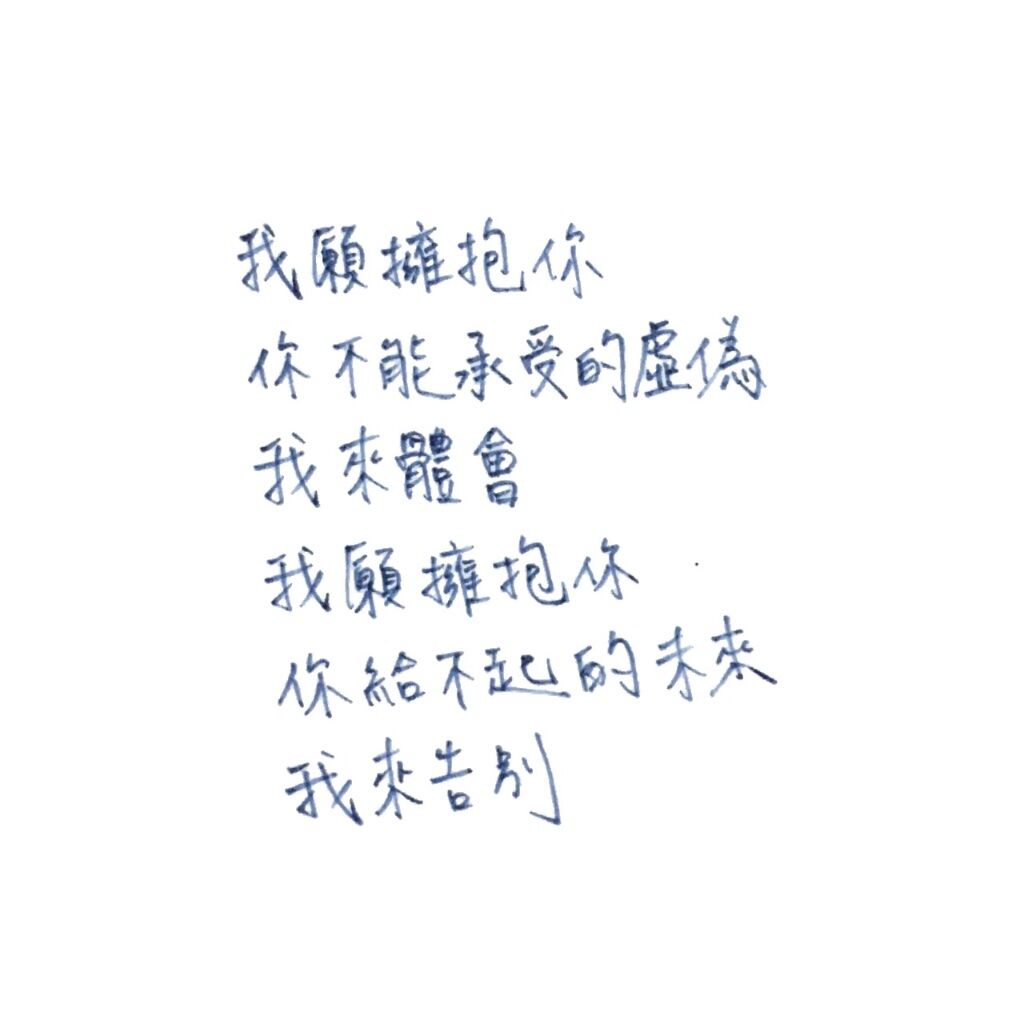 我願擁抱你
你不能承受的虛偽
我來體會
我願擁抱你
你給不起的未來
我來告別